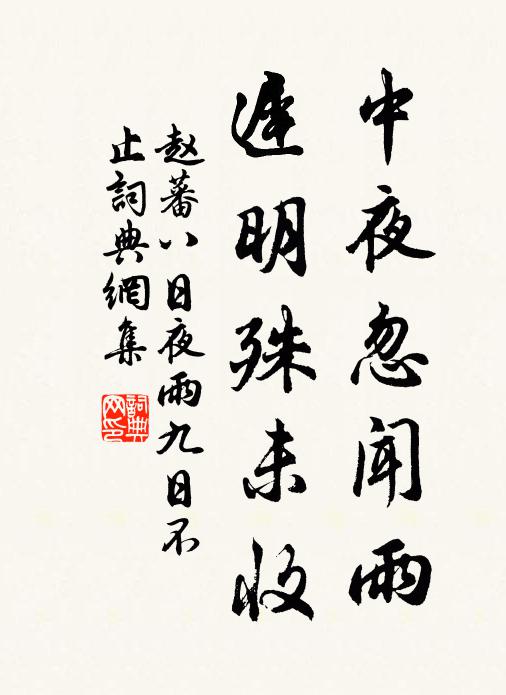 中夜忽闻雨
遲明殊未收
赵蕃八日夜雨九日不
止詞典網集
詞典
网印